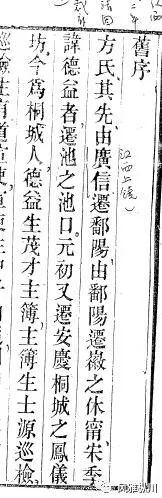 舊序
方氏其先由廣信遷鄱陽由鄱陽遷徽之休甯宋季
江西上饒
諱德益者遷池之池口元初又遷安慶桐城之鳳儀
坊今為桐城人德益生茂才主簿主簿生士源巡檢
巡檢生有道宣